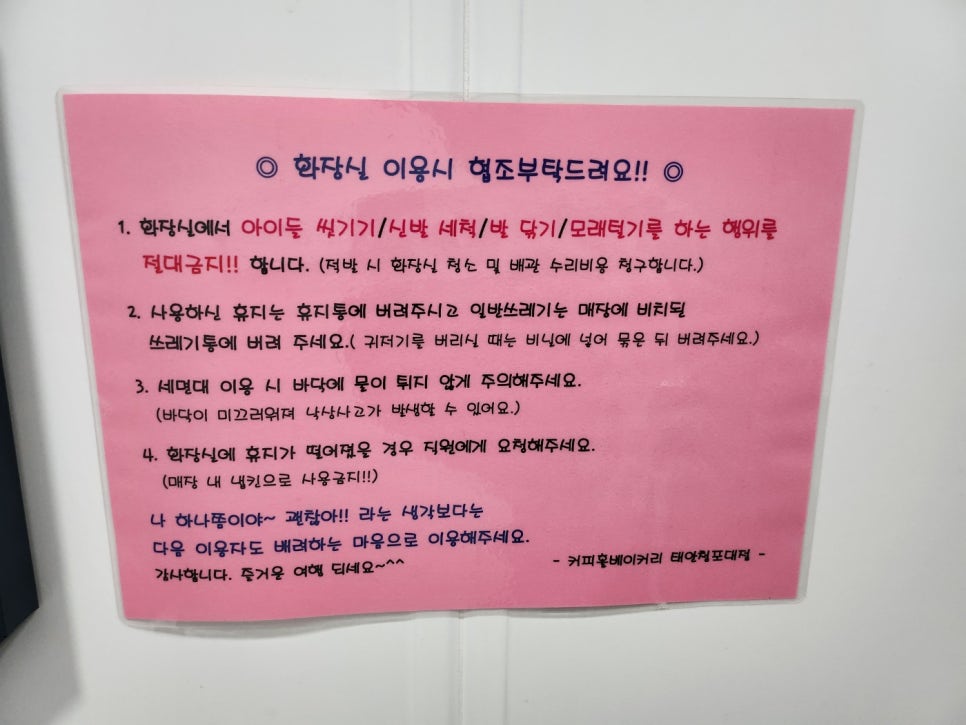 ◎ 화장실 이용시 협조부탁드려요!! ◎
1. 화장실에서 아이들 씻기기/신발 세척/발 닦기/모래털기를 하는 행위를
절대금지!! 합니다. (적발 시 화장실 청소 및 배관 수리비용 청구합니다.)
2. 사용하신 휴지는 휴지통에 버려주시고 일반쓰레기는 매장에 비치된
쓰레기통에 버려 주세요.( 귀저기를 버리실 때는 비닐에 넣어 묶은 뒤 버려주세요.)
3. 세면대 이용 시 바닥에 물이 튀지 않게 주의해주세요.
(바닥이 미끄러워져 낙상사고가 발생할 수 있어요.)
4. 화장실에 휴지가 떨어졌을 경우 직원에게 요청해주세요.
(매장 내 냅킨으로 사용금지!!)
나 하나쯤이야~ 괜찮아!! 라는 생각보다는
다음 이용자도 배려하는 마음으로 이용해주세요.
감사합니다. 즐거운 여행 되세요~^^
- 커피홀베이커리 태안청포대점 -